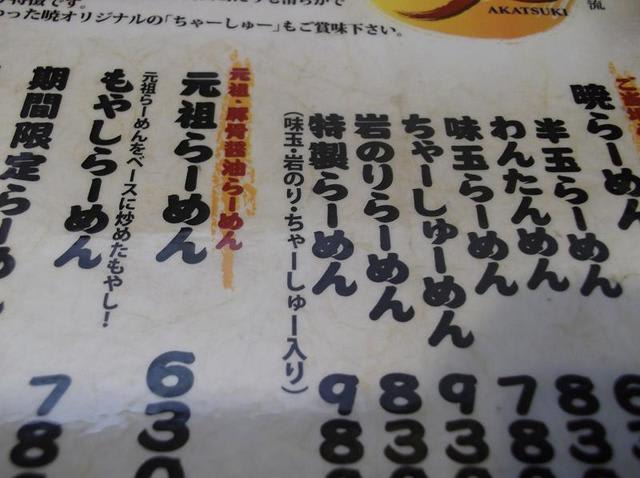 特徴です。
った暁オリジナルの「ちゃーしゅー」もご賞味下さい。
AKATSUKI
流
暁らーめん
6
半玉らーめん
8 3
わんたんめん
7 8
味玉らーめん
8 3
ちゃーしゅーめん
9 3
岩のりらーめん
8 3
特製らーめん
9 8
(味玉・岩のり・ちゃーしゅー入り)
元祖・豚骨醤油らーめん
元祖らーめん
6 3
元祖らーめんをベースに炒めたもやし!
もやしらーめん
7 8
期間限定らーめ